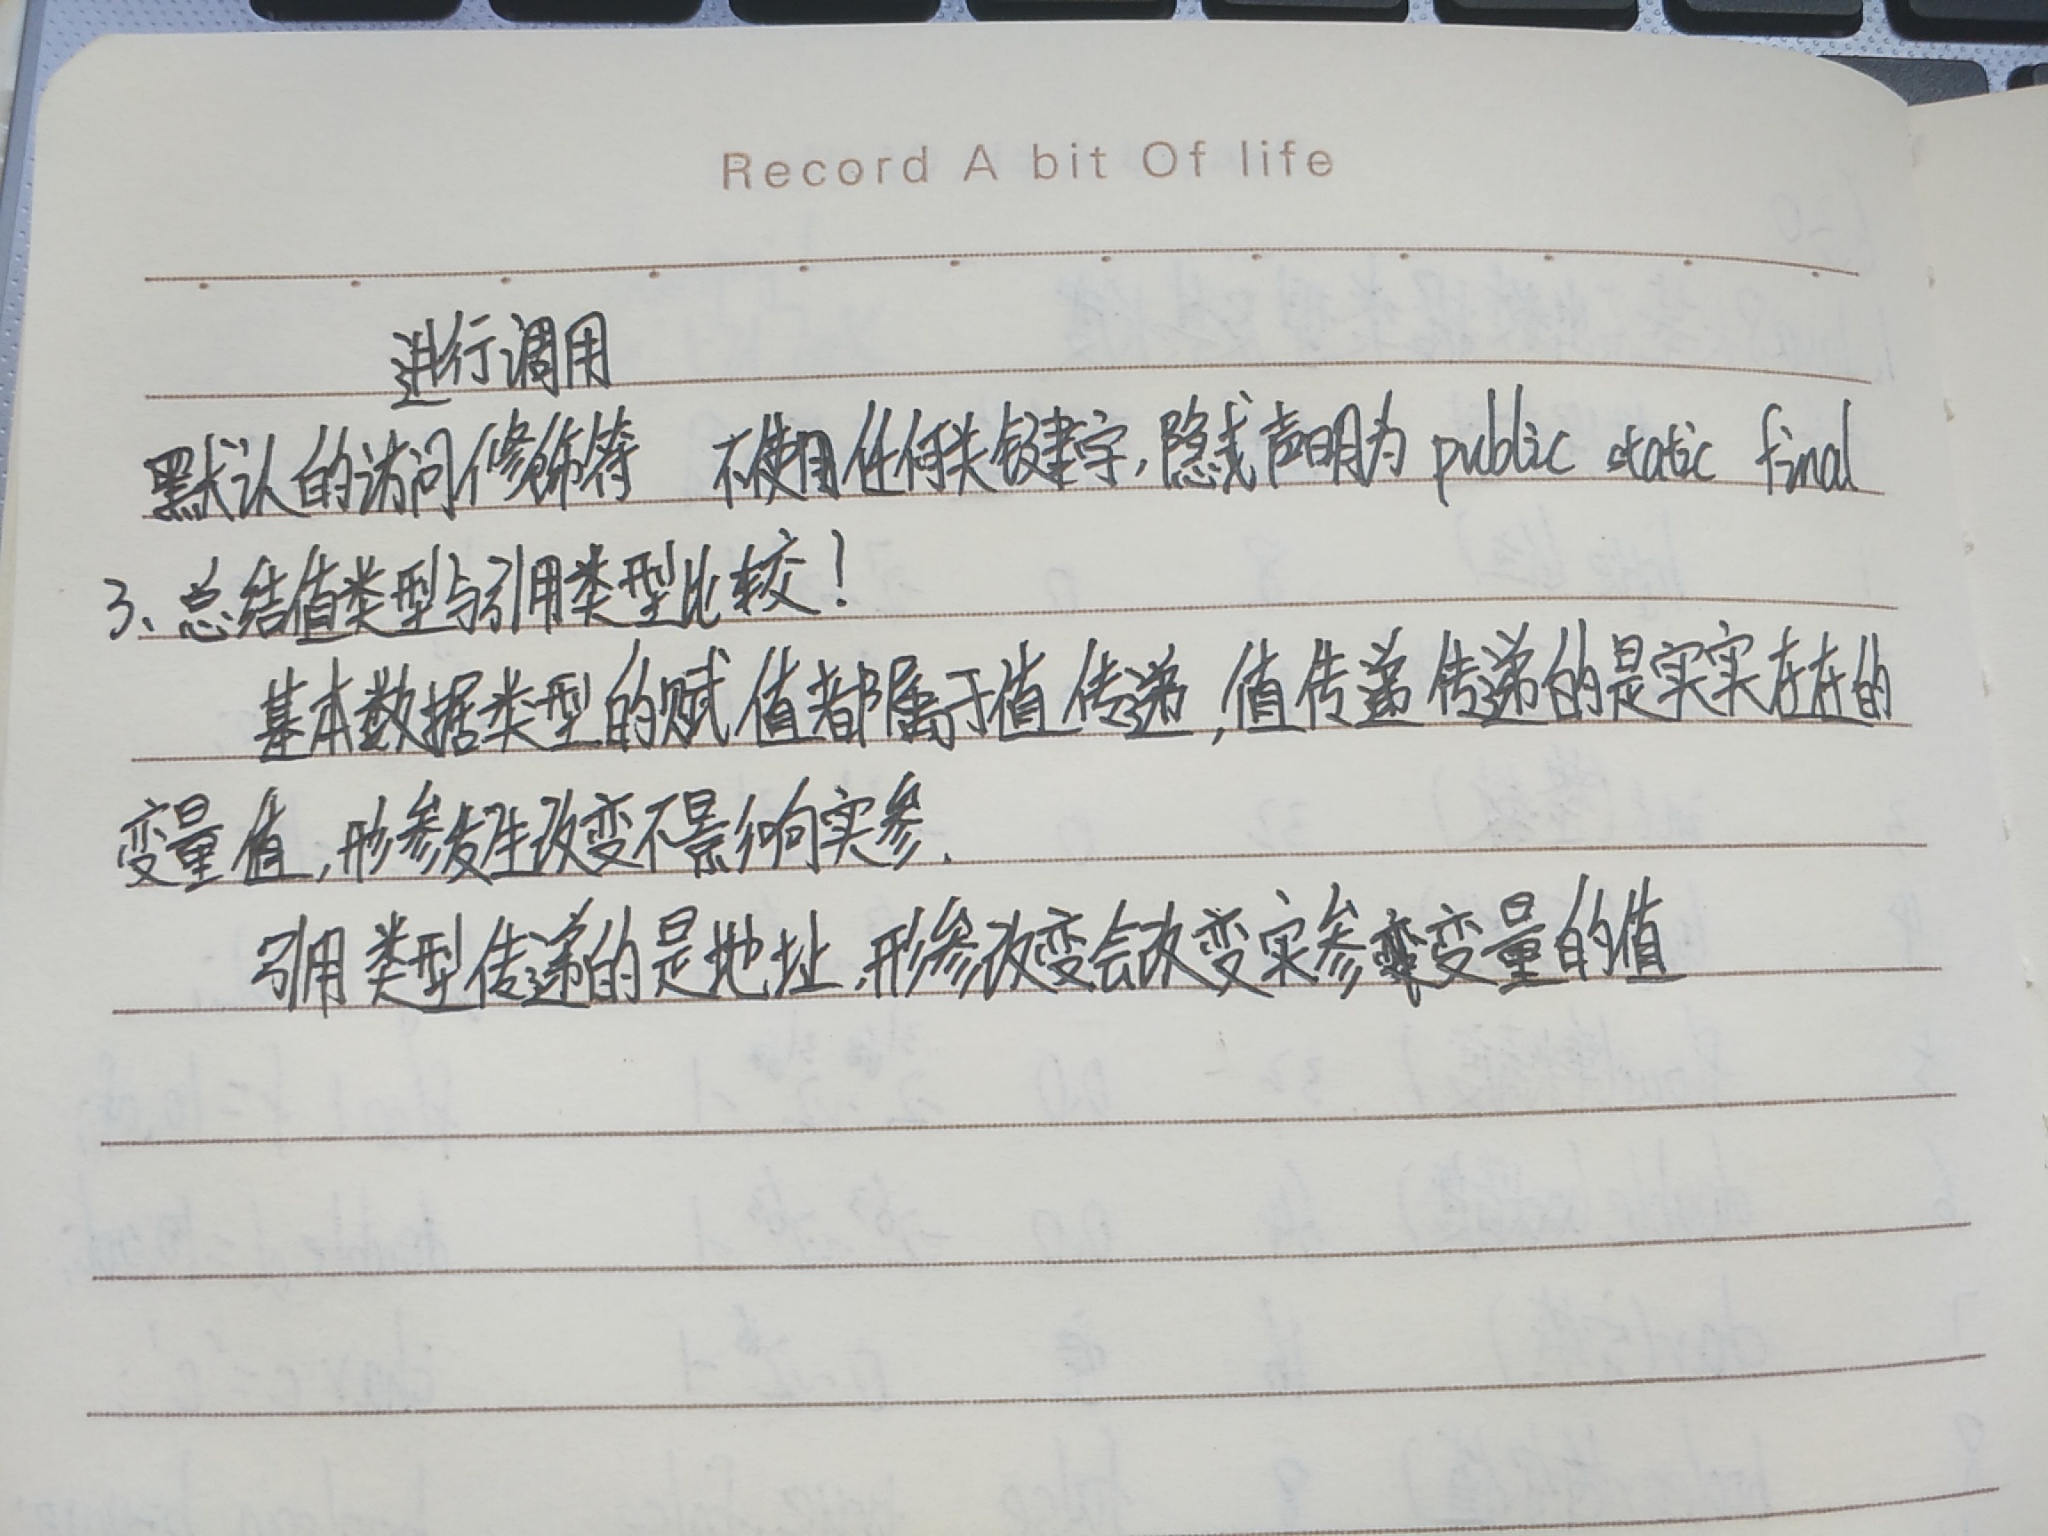 Record A bit Of life
进行调用
默认的访问修饰符 不使用任何关键字,隐式声明为 public static final
3、总结值类型与引用类型比较!
基本数据类型的赋值都属于值传递,值传递传递的是实实在在的
变量值,形参发生改变不影响实参.
引用类型传递的是地址,形参改变会改变实参变量的值